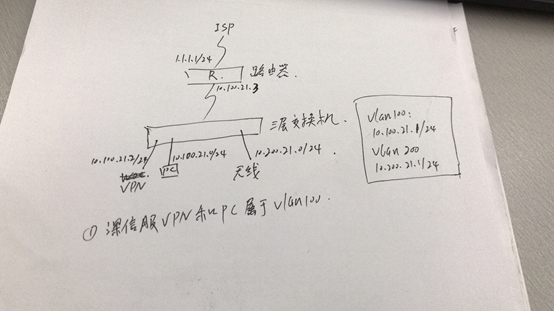 ISP
1.1.1.1/24
R.
路由器.
10.100.21.3
三层交换机.
10.100.21.2/24
10.100.21.0/24
10.200.21.0/24
VPN
PC
无线
vlan100:
10.100.21.1/24
vlan 200
10.200.21.1/24
① 深信服VPN和PC属于vlan100.